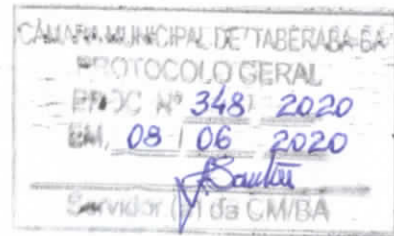 CÂMARA MUNICIPAL DE ITABERABA-BA
PROTOCOLO GERAL
PROC Nº 348/ 2020
EM, 08 / 06 2020
Servidor (a) da CM/BA